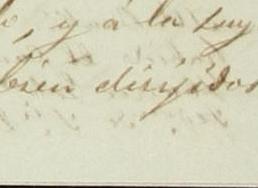 , y á la suy
bien dirijidos